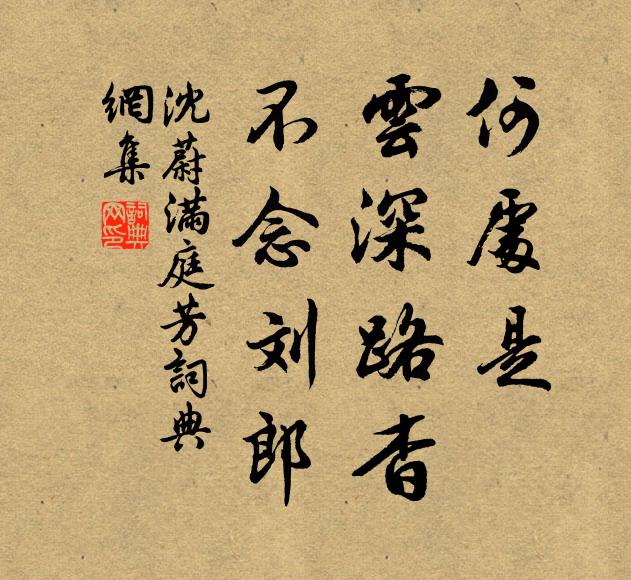 何處是
雲深路杳
不念刘郎
沈蔚满庭芳詞典
網集
詞典網印